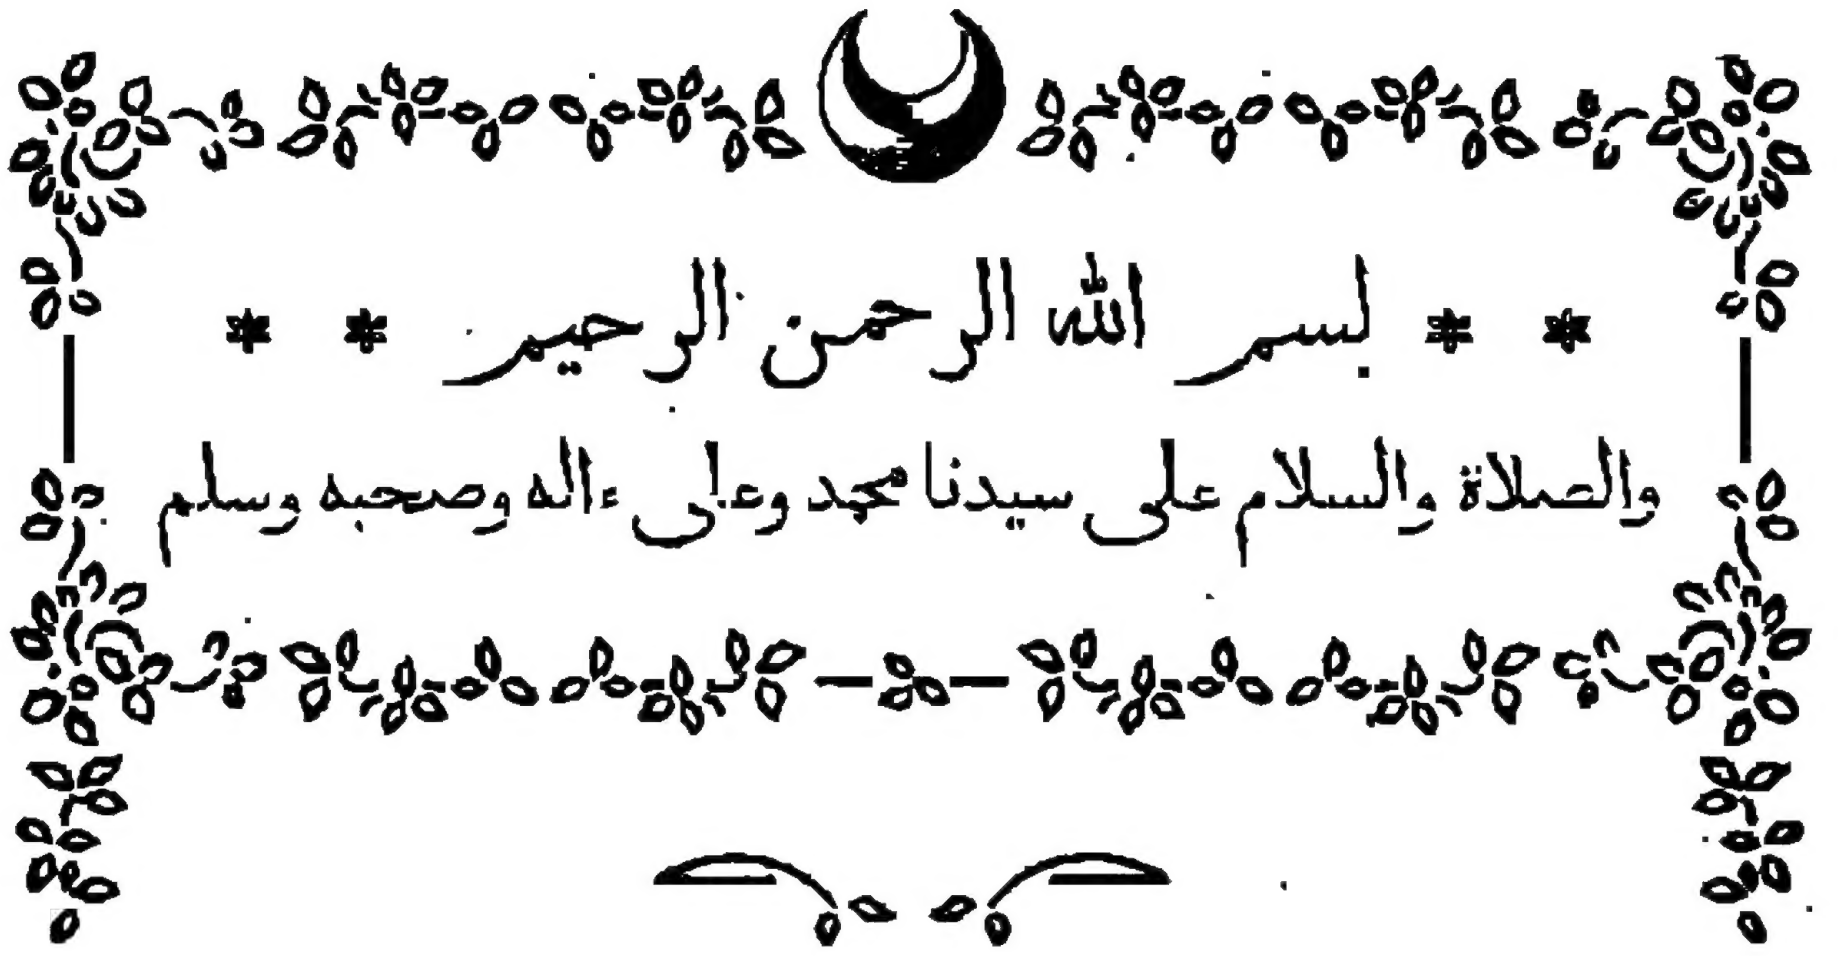 * * بسم الله الرحمن الرحيم * *
والصلاة والسلام على سيدنا محمد وعلى ءاله وصحبه وسلم